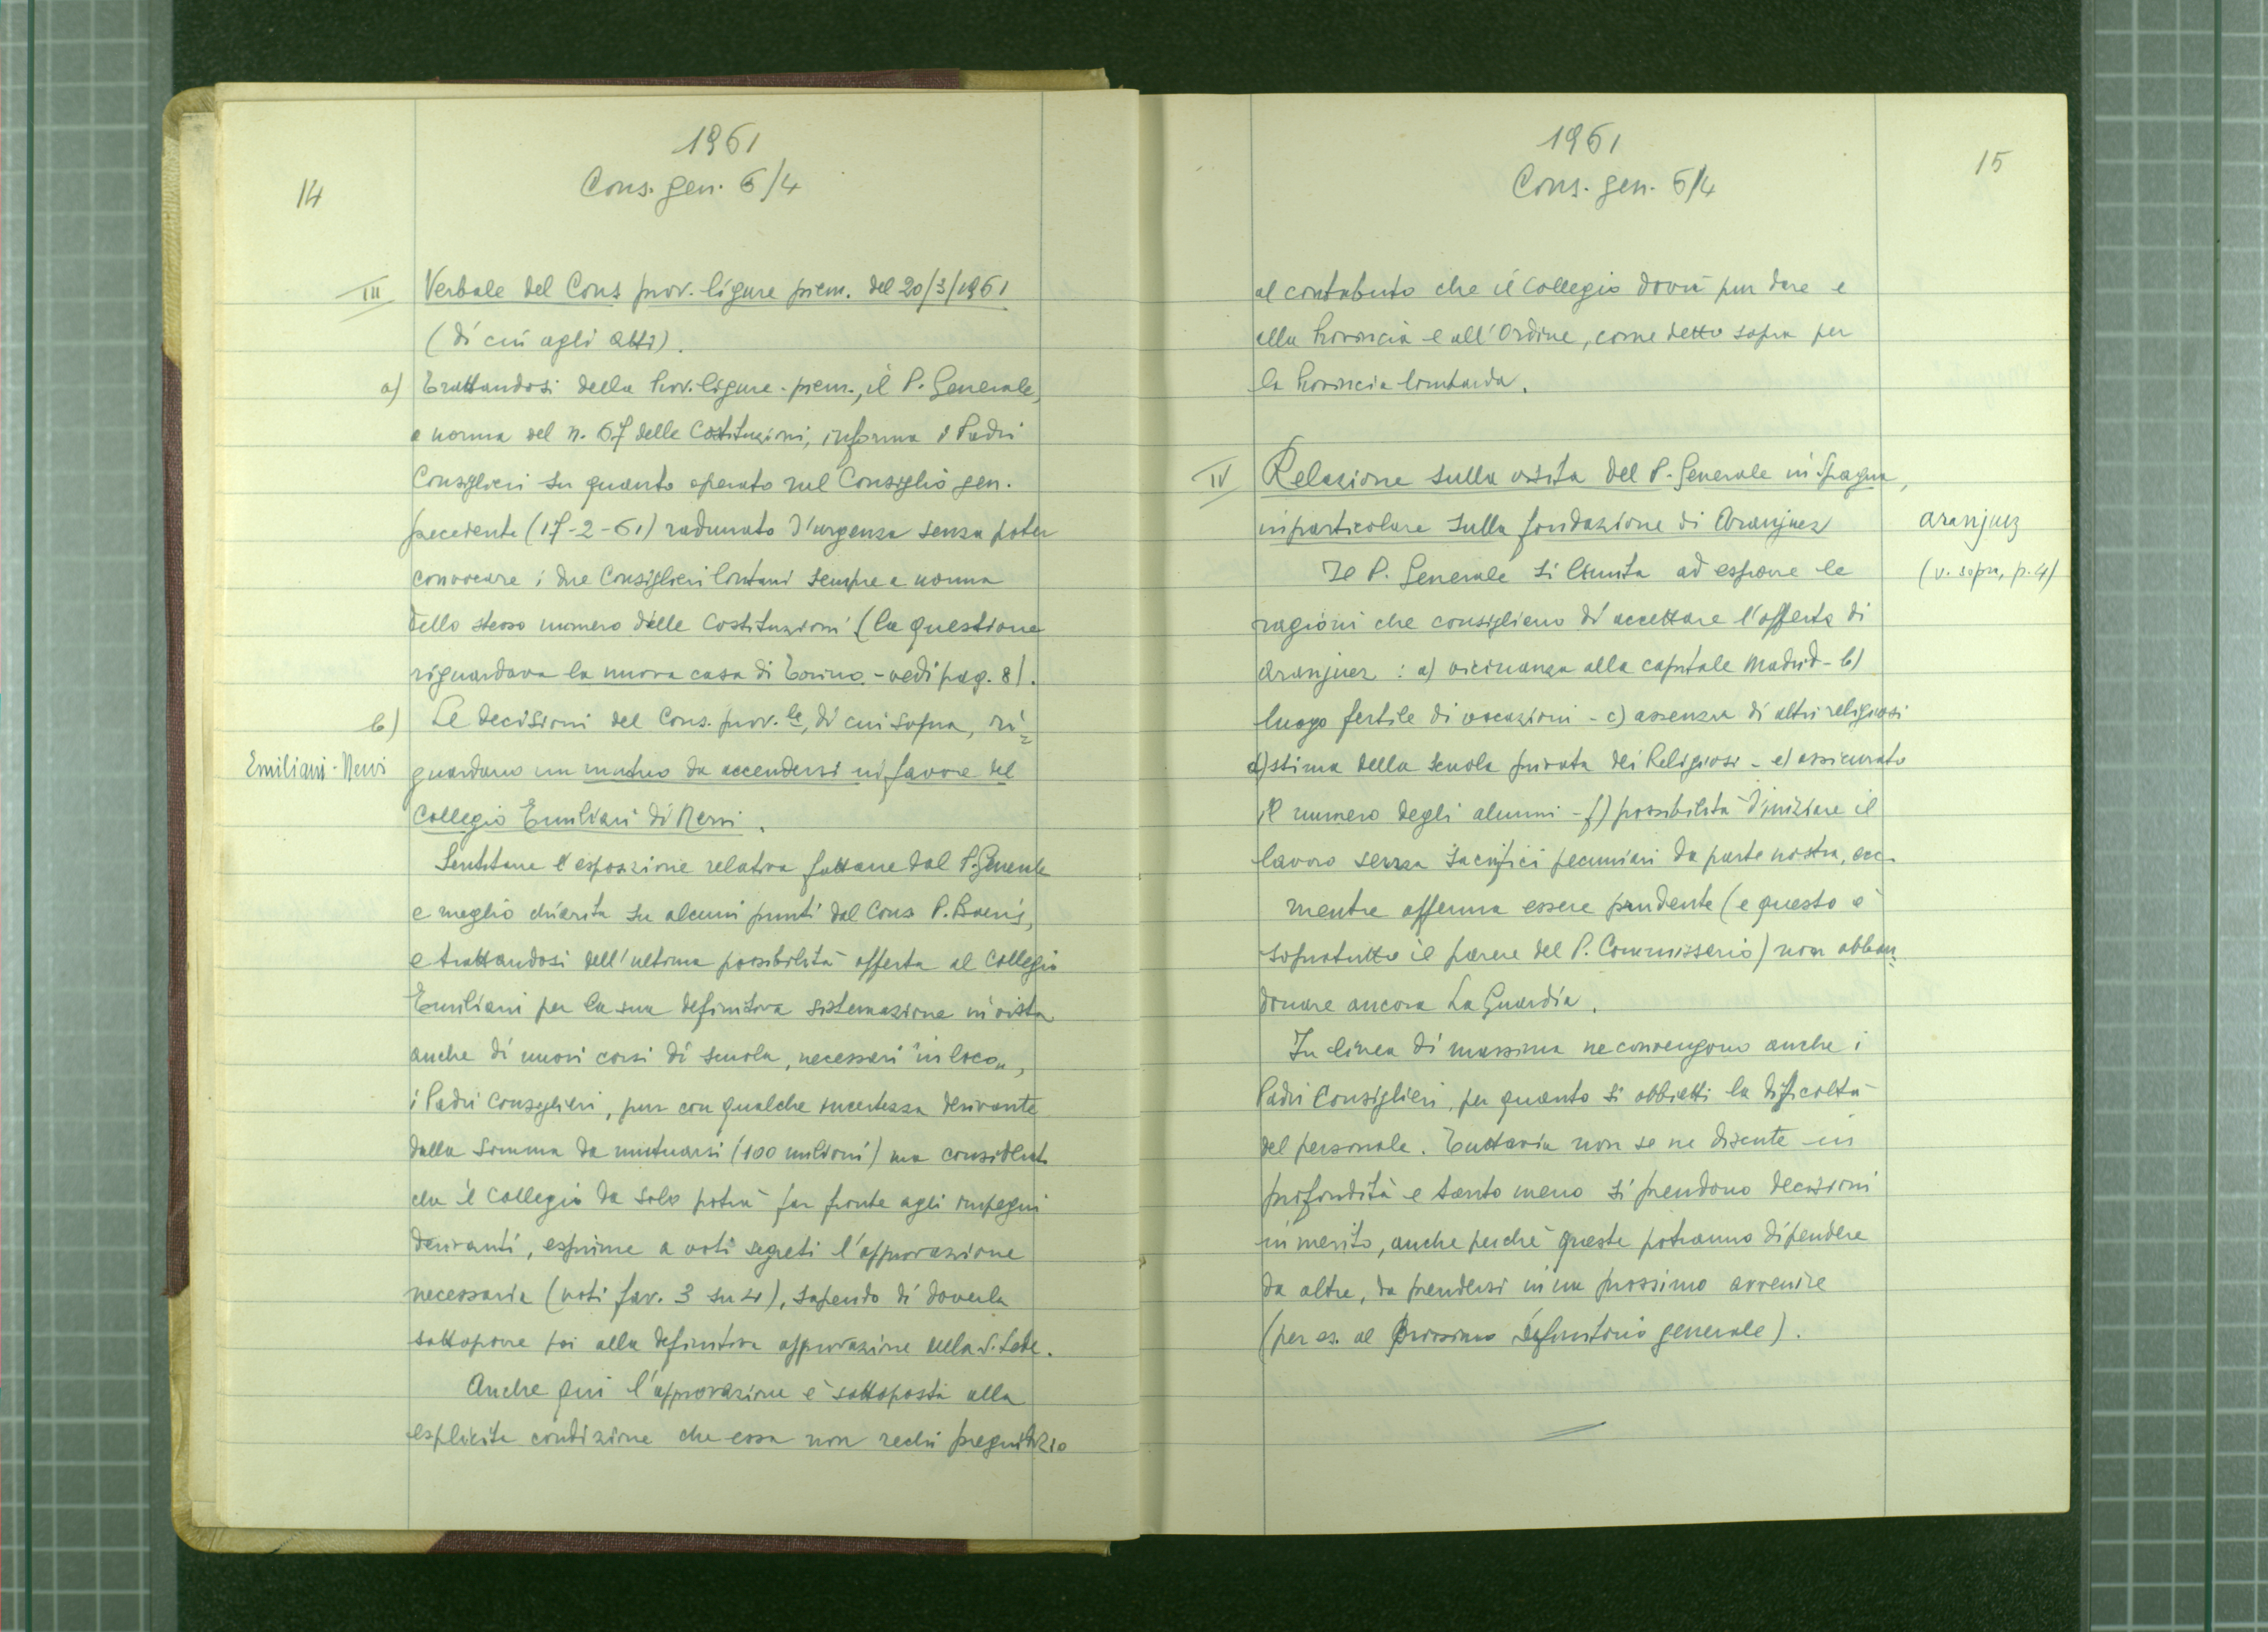 1961
Cons. gen. 6/4
14
III Verbale del Cons prov. ligure piem. del 20/3/1961
(di cui agli atti).
a) Trattandosi della Prov. ligure-piem., il P. Generale,
a norma del n. 67 delle Costituzioni, informa i Padri
Consiglieri su quanto operato nel Consiglio gen.
precedente (17-2-61) radunato d'urgenza senza poter
convocare i due Consiglieri lontani sempre a norma
dello stesso numero delle Costituzioni (la questione
riguardava la nuova casa di Torino - vedi pag. 8).
b) Le decisioni del Cons. prov.le, di cui sopra, ri=
Emiliani-Nervi guardano un mutuo da accendersi in favore del
Collegio Emiliani di Nervi.
Sentitane l'esposizione relativa fattane dal P. Generale
e meglio chiarita su alcuni punti dal Cons P. Boeris,
e trattandosi dell'ultima possibilità offerta al Collegio
Emiliani per la sua definitiva sistemazione in vista
anche di nuovi corsi di scuola, necessari "in loco",
i Padri Consiglieri, pur con qualche incertezza derivante
dalla somma da mutuarsi (100 milioni) ma
che il Collegio da solo potrà far fronte agli impegni
derivanti, esprime a voti segreti l'approvazione
necessaria (voti fav. 3 su 4), sapendo di doverla
sottoporre poi alla definitiva approvazione della S. Sede.
Anche qui l'approvazione è sottoposta alla
esplicita condizione che essa non rechi pregiudizio
1961
Cons. gen. 6/4
15
al contributo che il Collegio dovrà pur dare e
alla Provincia e all'Ordine, come detto sopra per
la Provincia lombarda.
IV Relazione sulla visita del P. Generale in Spagna,
in particolare sulla fondazione di Aranjuez
Aranjuez
Il P. Generale si limita ad esporre le
(v. sopra, p. 4)
ragioni che consigliano di accettare l'offerta di
Aranjuez : a) vicinanza alla capitale Madrid - b)
luogo fertile di vocazioni - c) assenza di altri religiosi
d) stima della scuola privata dei Religiosi - e) assicurato
il numero degli alunni - f) possibilità d'iniziare il
lavoro senza sacrifici pecuniari da parte nostra, ecc.
mentre afferma essere prudente (e questo è
sopratutto il parere del P. Commissario) non abban=
donare ancora La Guardia.
In linea di massima ne convengono anche i
Padri Consiglieri, per quanto si obbietti la difficoltà
del personale. Tuttavia non se ne discute in
profondità e tanto meno si prendono decisioni
in merito, anche perché queste potranno dipendere
da altre, da prendersi in un prossimo avvenire
(per es. al prossimo Definitorio generale).